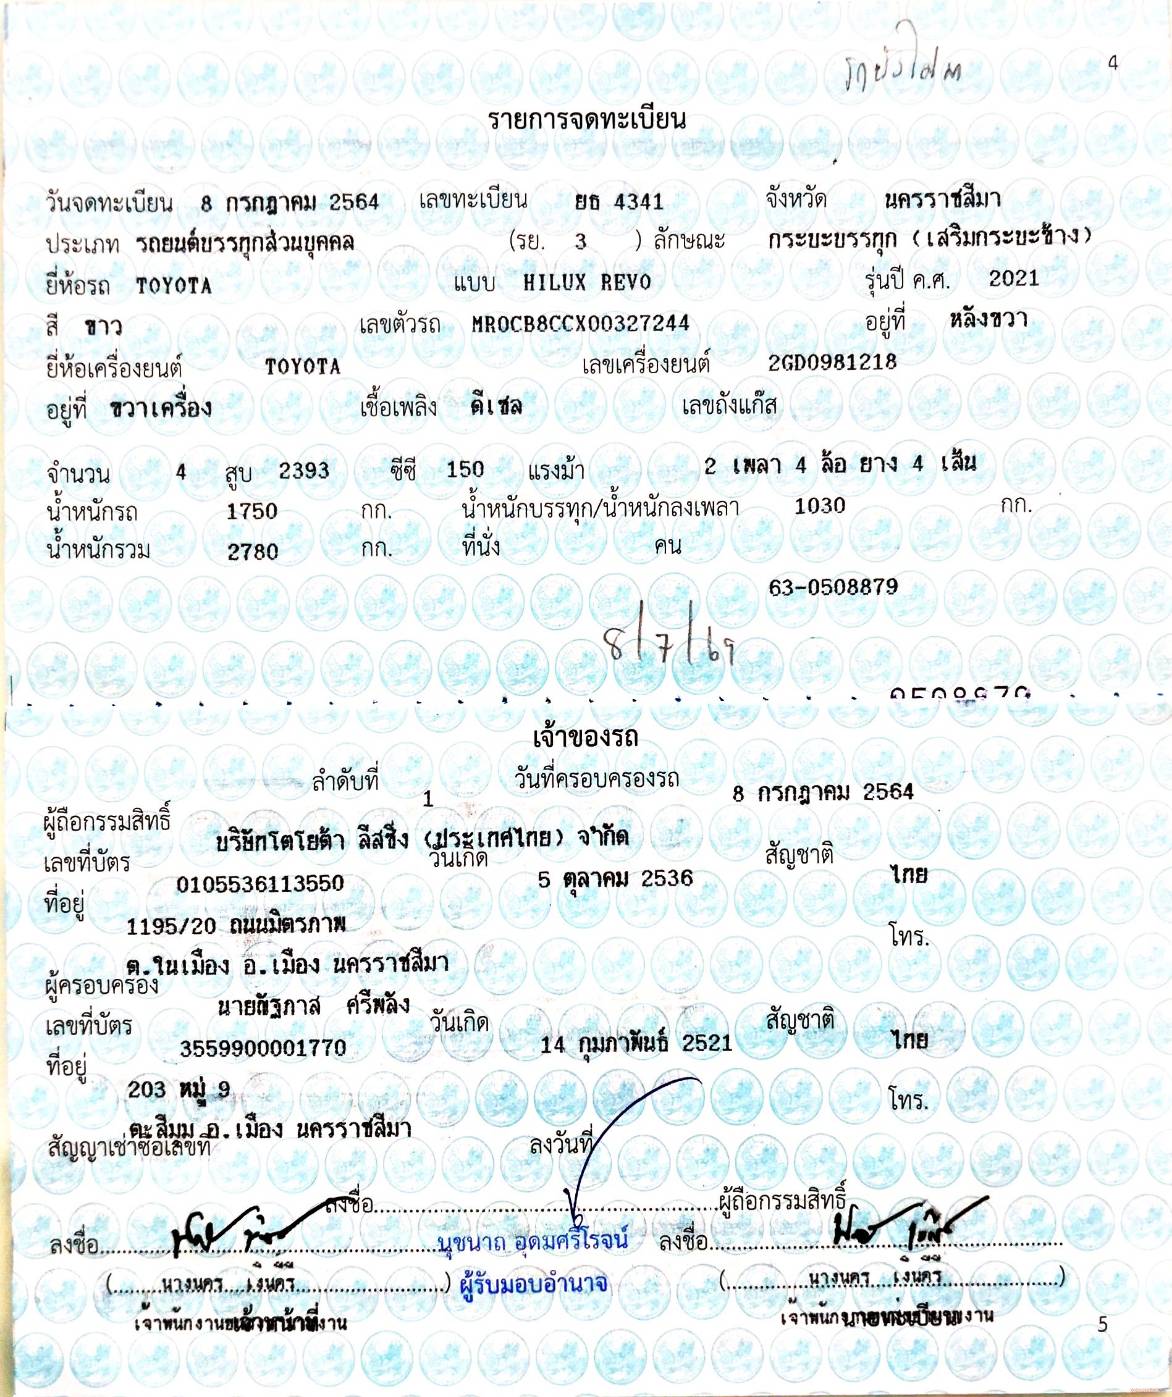 4
รายการจดทะเบียน
วันจดทะเบียน 8 กรกฎาคม 2564 เลขทะเบียน ยธ 4341 จังหวัด นครราชสีมา
ประเภท รถยนต์บรรทุกส่วนบุคคล (รย. 3 ) ลักษณะ กระบะบรรทุก (เสริมกระบะข้าง)
ยี่ห้อรถ TOYOTA แบบ HILUX REVO รุ่นปี ค.ศ. 2021
สี ขาว เลขตัวรถ MR0CB8CCX00327244 อยู่ที่ หลังขวา
ยี่ห้อเครื่องยนต์ TOYOTA เลขเครื่องยนต์ 2GD0981218
อยู่ที่ ขวาเครื่อง เชื้อเพลิง ดีเซล เลขถังแก๊ส
จำนวน 4 สูบ 2393 ซีซี 150 แรงม้า 2 เพลา 4 ล้อ ยาง 4 เส้น
น้ำหนักรถ 1750 กก. น้ำหนักบรรทุก/น้ำหนักลงเพลา 1030 กก.
น้ำหนักรวม 2780 กก. ที่นั่ง คน
63-0508879
8/7/69
เจ้าของรถ
ลำดับที่ 1 วันที่ครอบครองรถ 8 กรกฎาคม 2564
ผู้ถือกรรมสิทธิ์ บริษัทโตโยต้า ลีสซิ่ง (ประเทศไทย) จำกัด
เลขที่บัตร 0105536113550 วันเกิด 5 ตุลาคม 2536 สัญชาติ ไทย
ที่อยู่ 1195/20 ถนนมิตรภาพ โทร.
ต.ในเมือง อ.เมือง นครราชสีมา
ผู้ครอบครอง นายณัฐภาส ศรีพลัง
เลขที่บัตร 3559900001770 วันเกิด 14 กุมภาพันธ์ 2521 สัญชาติ ไทย
ที่อยู่ 203 หมู่ 9 โทร.
ต.สีมุม อ.เมือง นครราชสีมา
สัญญาเช่าซื้อเลขที่ ลงวันที่
ลงชื่อ ผู้ถือกรรมสิทธิ์
ลงชื่อ นุชนาถ อุดมศรีโรจน์ ลงชื่อ
( นางนคร เงินดีรี ) ผู้รับมอบอำนาจ ( นางนคร เงินดีรี )
เจ้าหน้าที่ นายทะเบียน
5